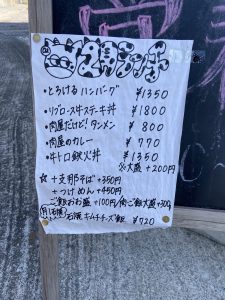 ・とろける ハンバーグ ¥1350
・リブロース牛ステーキ丼 ¥1800
・肉屋だけど!タンメン ¥800
・肉屋のカレー ¥770
・牛トロ鉄火丼 ¥1350
※大盛 +200円
☆ +支那そば +350円
+つけめん +450円
ご飯おお盛 +100円/肉ご飯大盛+300円
石焼 キムチチーズ飯 ¥720